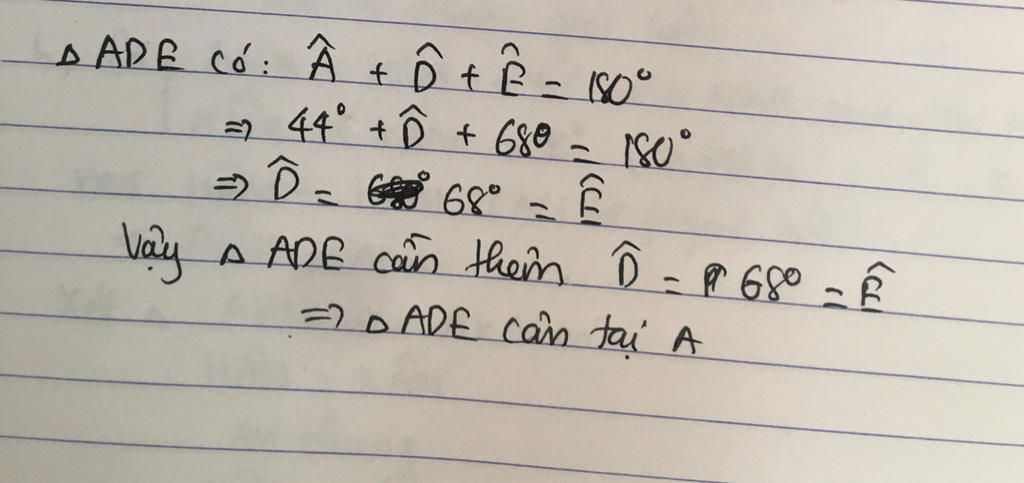 Δ ADE có: Â + D̂ + Ê = 180°
⇒ 44° + D̂ + 68° = 180°
⇒ D̂ = 68° = Ê
Vậy Δ ADE cần thêm D̂ = 68° = Ê
⇒ Δ ADE cân tại A